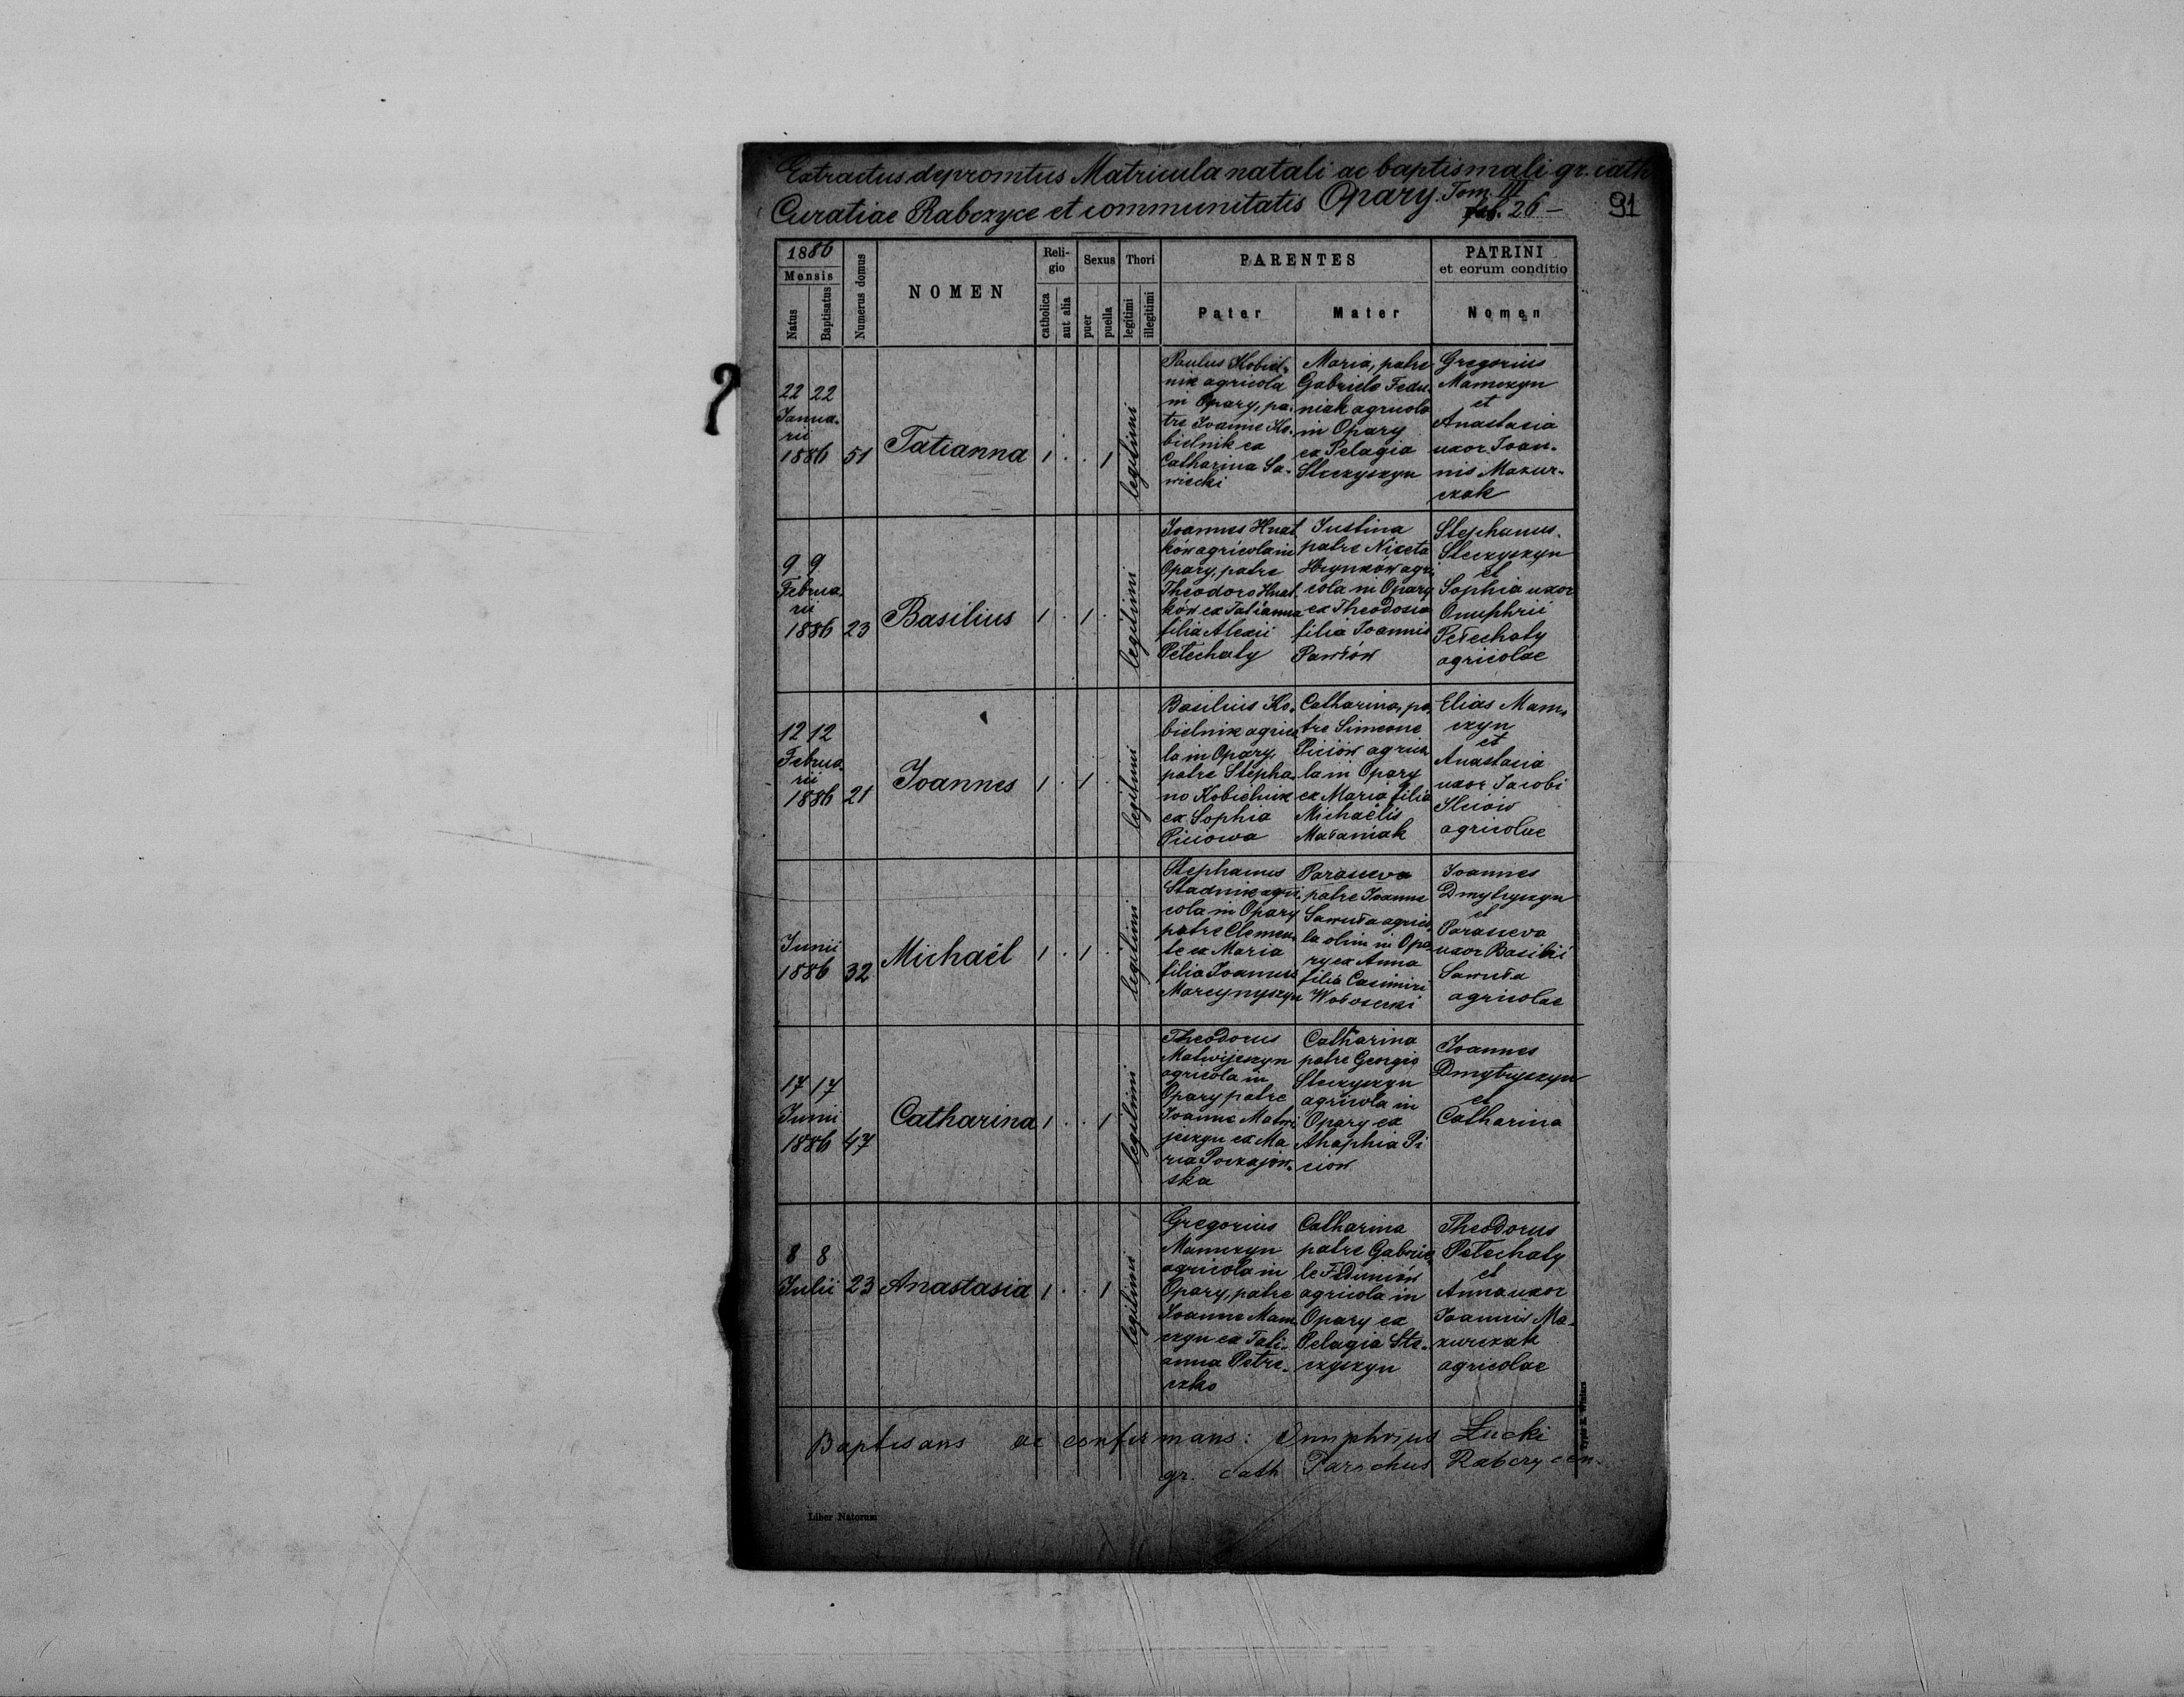 Extractus depromtus Matricula natali ac baptismali gr. cath
Curatiae Rabczyce et communitatis Opary. Tom. III
26 –
91
1886
Mensis
Natus
Baptisatus
Numerus domus
NOMEN
Reli-
gio
catholica
aut alia
Sexus
puer
puella
Thori
legitimi
illegitimi
PARENTES
Pater
Mater
PATRINI
et eorum conditio
Nomen
22 22
Janua-
rii
1886
51
Tatianna
1 . . 1
legitimi
Paulus Kobiel-
nik agricola
in Opary, pa-
tre Joanne Ko-
bielnik ex
Catharina Sa-
wicki
Maria, patre
Gabriele Fedu-
niak agricola
in Opary
ex Pelagia
Steczyszyn
Gregorius
Mamczyn
et
Anastasia
uxor Joan-
nis Mazur-
czak
9 9
Februa-
rii
1886
23
Basilius
1 . 1 .
legitimi
Joannes Hnat-
ków agricola in
Opary, patre
Theodoro Hnat-
ków ex Tatianna
filia Alexii
Petechaty
Justina
patre Niceta
Hrynków agri-
cola in Opary
ex Theodosia
filia Joannis
Pawłów
Stephanus
Steczyszyn
et
Sophia uxor
Onuphrii
Petechaty
agricolae
12 12
Februa-
rii
1886
21
Joannes
1 . 1 .
legitimi
Basilius Ko-
bielnik agrico-
la in Opary,
patre Stepha-
no Kobielnik
ex Sophia
Piciowa
Catharina, pa-
tre Simeone
Piciów agrico-
la in Opary
ex Maria filia
Michaëlis
Małaniak
Elias Mam-
czyn
et
Anastasia
uxor Jacobi
Ilciów
agricolae
Junii
1886
32
Michaël
1 . 1 .
legitimi
Stephanus
Stadnik agri-
cola in Opary
patre Clemen-
te ex Maria
filia Joannis
Marcynyszyn
Parasceva
patre Joanne
Sawuła agrico-
la olim in Opa-
ry ex Anna
filia Casimiri
Wołosecki
Joannes
Dmytryszyn
et
Parasceva
uxor Basilii
Sawuła
agricolae
17 17
Junii
1886
47
Catharina
1 . . 1
legitimi
Theodorus
Matwijeszyn
agricola in
Opary patre
Joanne Matwi
jeszyn ex Ma
ria Poczajow-
ska
Catharina
patre Georgio
Steczyszyn
agricola in
Opary ex
Ahaphia Pi
ciow
Joannes
Dmytryszyn
et
Catharina
8 8
Julii
23
Anastasia
1 . . 1
legitimi
Gregorius
Mamczyn
agricola in
Opary, patre
Joanne Mam-
czyn ex Tati-
anna Petre-
czko
Catharina
patre Gabrie-
le Feduniów
agricola in
Opary ex
Pelagia Ste-
czyszyn
Theodorus
Petechaty
et
Anna uxor
Joannis Ma-
zurczak
agricolae
Baptisans ac confirmans: Onuphrius Łucki
gr. cath Parochus Rabczycen.
Liber Natorum